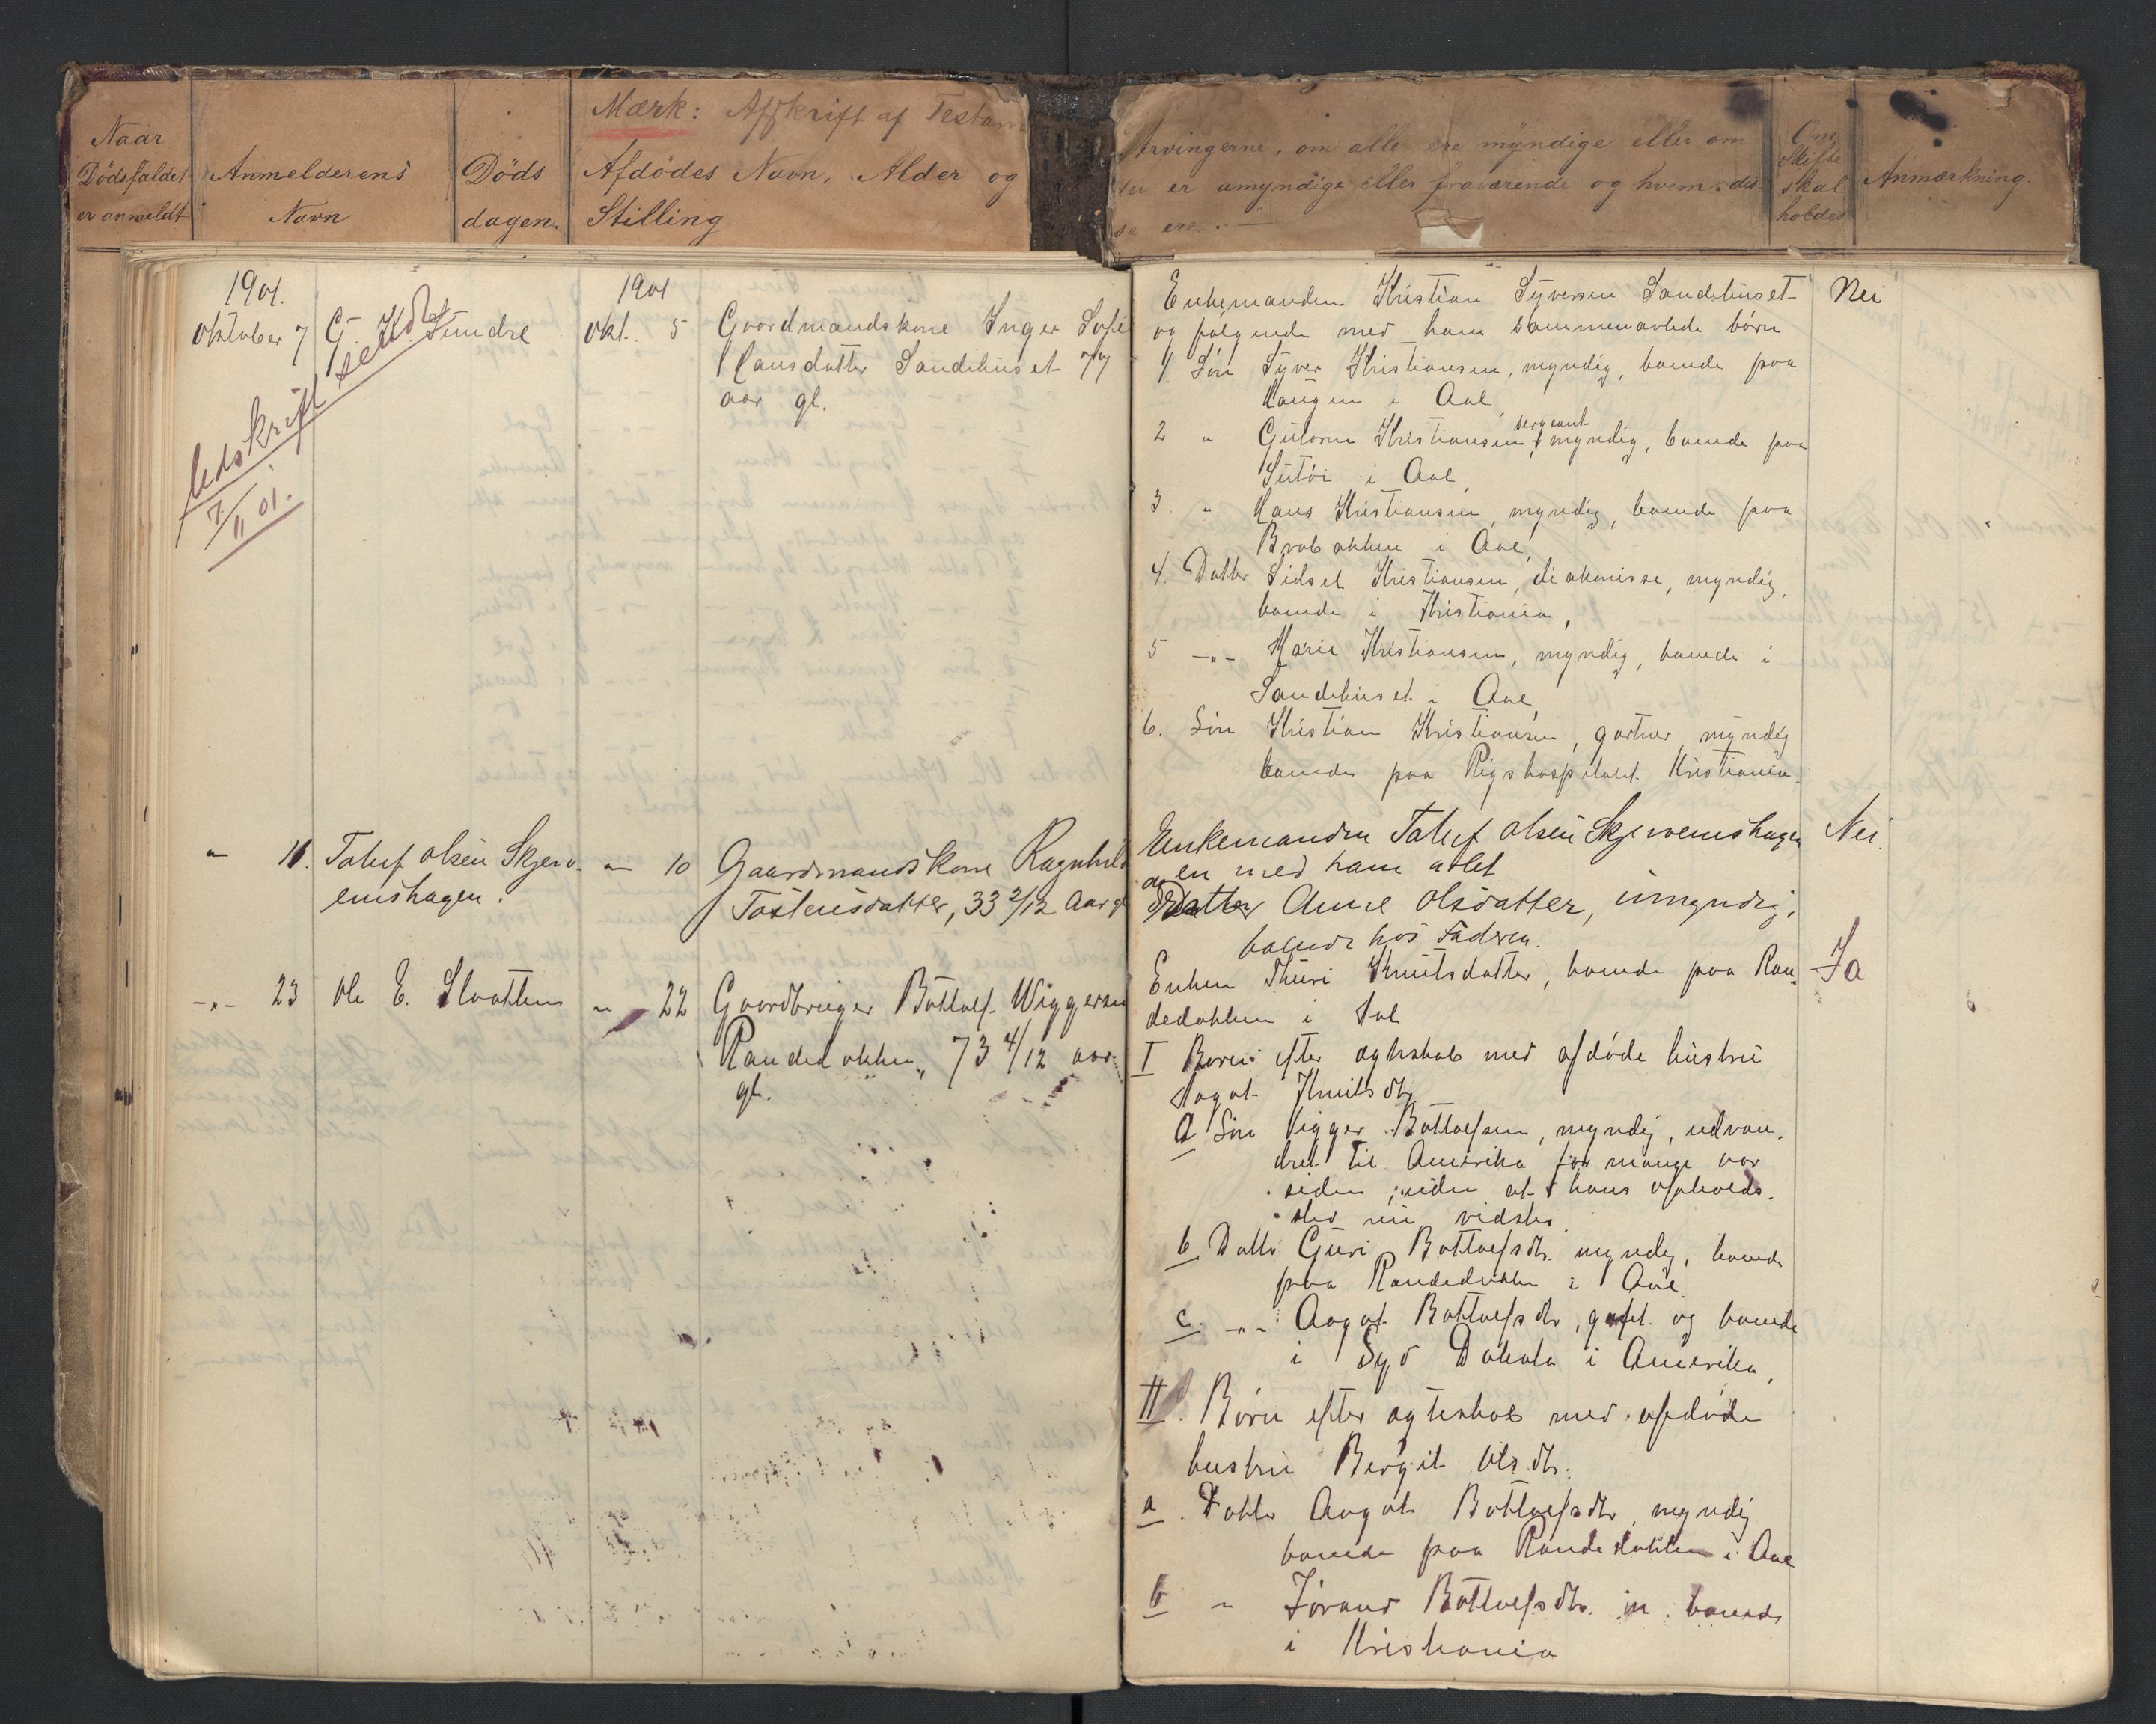 Mærk: Afskrift af Testam
Naar
Dödsfaldet
er anmeldt
Anmelderens
Navn
Döds
dagen.
Afdödes Navn, Alder og
Stilling
Arvingerne, om alle ere myndige eller om
der er umyndige eller fraværende og hvem dis
se ere.
Om
Skifte
skal
holdes
Anmærkning.
1901.
Oktober 7 G. Sundre
Udskrift sen
7/11 01.
1901
Okt. 5
Gaardmandskone Inger Sofie
Hansdatter Sandehuset 77
aar gl.
Enkemanden Kristian Syversen Sandehuset
og følgende med ham sammenavlede børn
1. Søn Syver Kristiansen, myndig, boende paa
Haugen i Aal,
2 " Gulorm Kristiansen, sergeant, myndig, boende paa
Sutøi i Aal,
3. " Hans Kristiansen, myndig, boende paa
Brobakken i Aal,
4. Datter Sidsel Kristiansen, diakonisse, myndig,
boende i Kristiania,
5 -"- Marie Kristiansen, myndig, boende i
Sandehuset i Aal,
6. Søn Kristian Kristiansen, gartner, myndig
boende paa Rigshospitalet Kristiania.
Nei
" 11. Toluf Olsen Skjerv-
emshagen.
" 10
Gaardmandskone Ragnhild
Tostensdatter, 33 2/12 Aar gl
Enkemanden Toluf Olsen Skjervemshagen
og en med ham avlet
Datter Anne Olsdatter, umyndig,
boende hos Faderen.
Nei.
-"- 23 Ole E. Slaatten
" 22
Gaardbruger Bottolf Wiggersen
Randedokken, 73 4/12 aar
gl.
Enken Thuri Knutsdatter, boende paa Ran-
dedokken i Aal
I Børn efter ægteskab med afdøde hustru
Aagot Knutsdtr
a Søn Vigger Bottolfsen, myndig, udvan-
dret til Amerika for mange aar
siden, uden at hans opholds-
sted nu vidstes.
b Datter Guri Bottolfsdtr. myndig, boende
paa Randedokken i Aal.
c. -"- Aagot Bottolfsdtr, gift og boende
i Syd Dakota i Amerika,
II. Børn efter ægteskab med afdøde
hustru Bergit Olsdtr.
a. Datter Aagot Bottolfsdtr, myndig
boende paa Randedokken i Aal
b " Jørand Bottolfsdtr. m. boende
i Kristiania
Ja